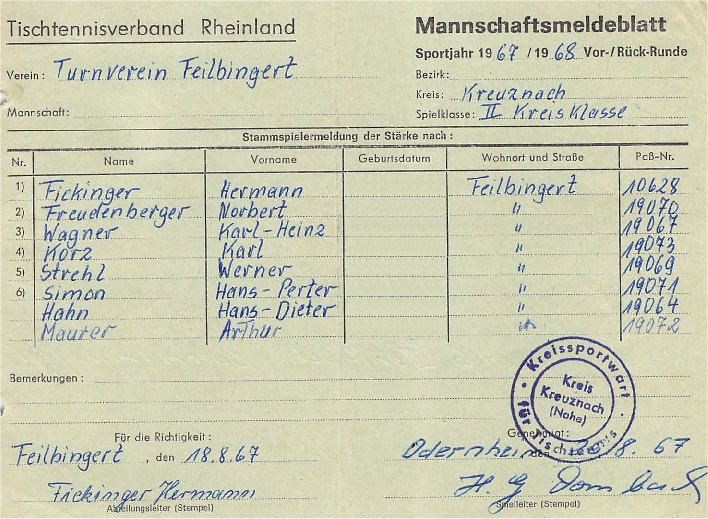 Tischtennisverband Rheinland
Mannschaftsmeldeblatt
Sportjahr 1967 / 1968 Vor-/Rück-Runde
Verein: Turnverein Feilbingert
Bezirk:
Kreis: Kreuznach
Mannschaft:
Spielklasse: II KreisKlasse
Stammspielermeldung der Stärke nach:
Nr. Name Vorname Geburtsdatum Wohnort und Straße Paß-Nr.
1) Fickinger Hermann Feilbingert 10628
2) Freudenberger Norbert " 19070
3) Wagner Karl-Heinz " 19067
4) Korz Karl " 19073
5) Strehl Werner " 19069
6) Simon Hans-Perter " 19071
Hahn Hans-Dieter " 19064
Maurer Arthur " 19072
Bemerkungen:
Kreissportwart für Tischtennis
Kreis
Kreuznach
(Nahe)
Für die Richtigkeit:
Genehmigt:
Feilbingert, den 18.8.67
Odernheim den 8. 67
Fickinger Hermann
H. G. Dombach
Abteilungsleiter (Stempel)
Spielleiter (Stempel)